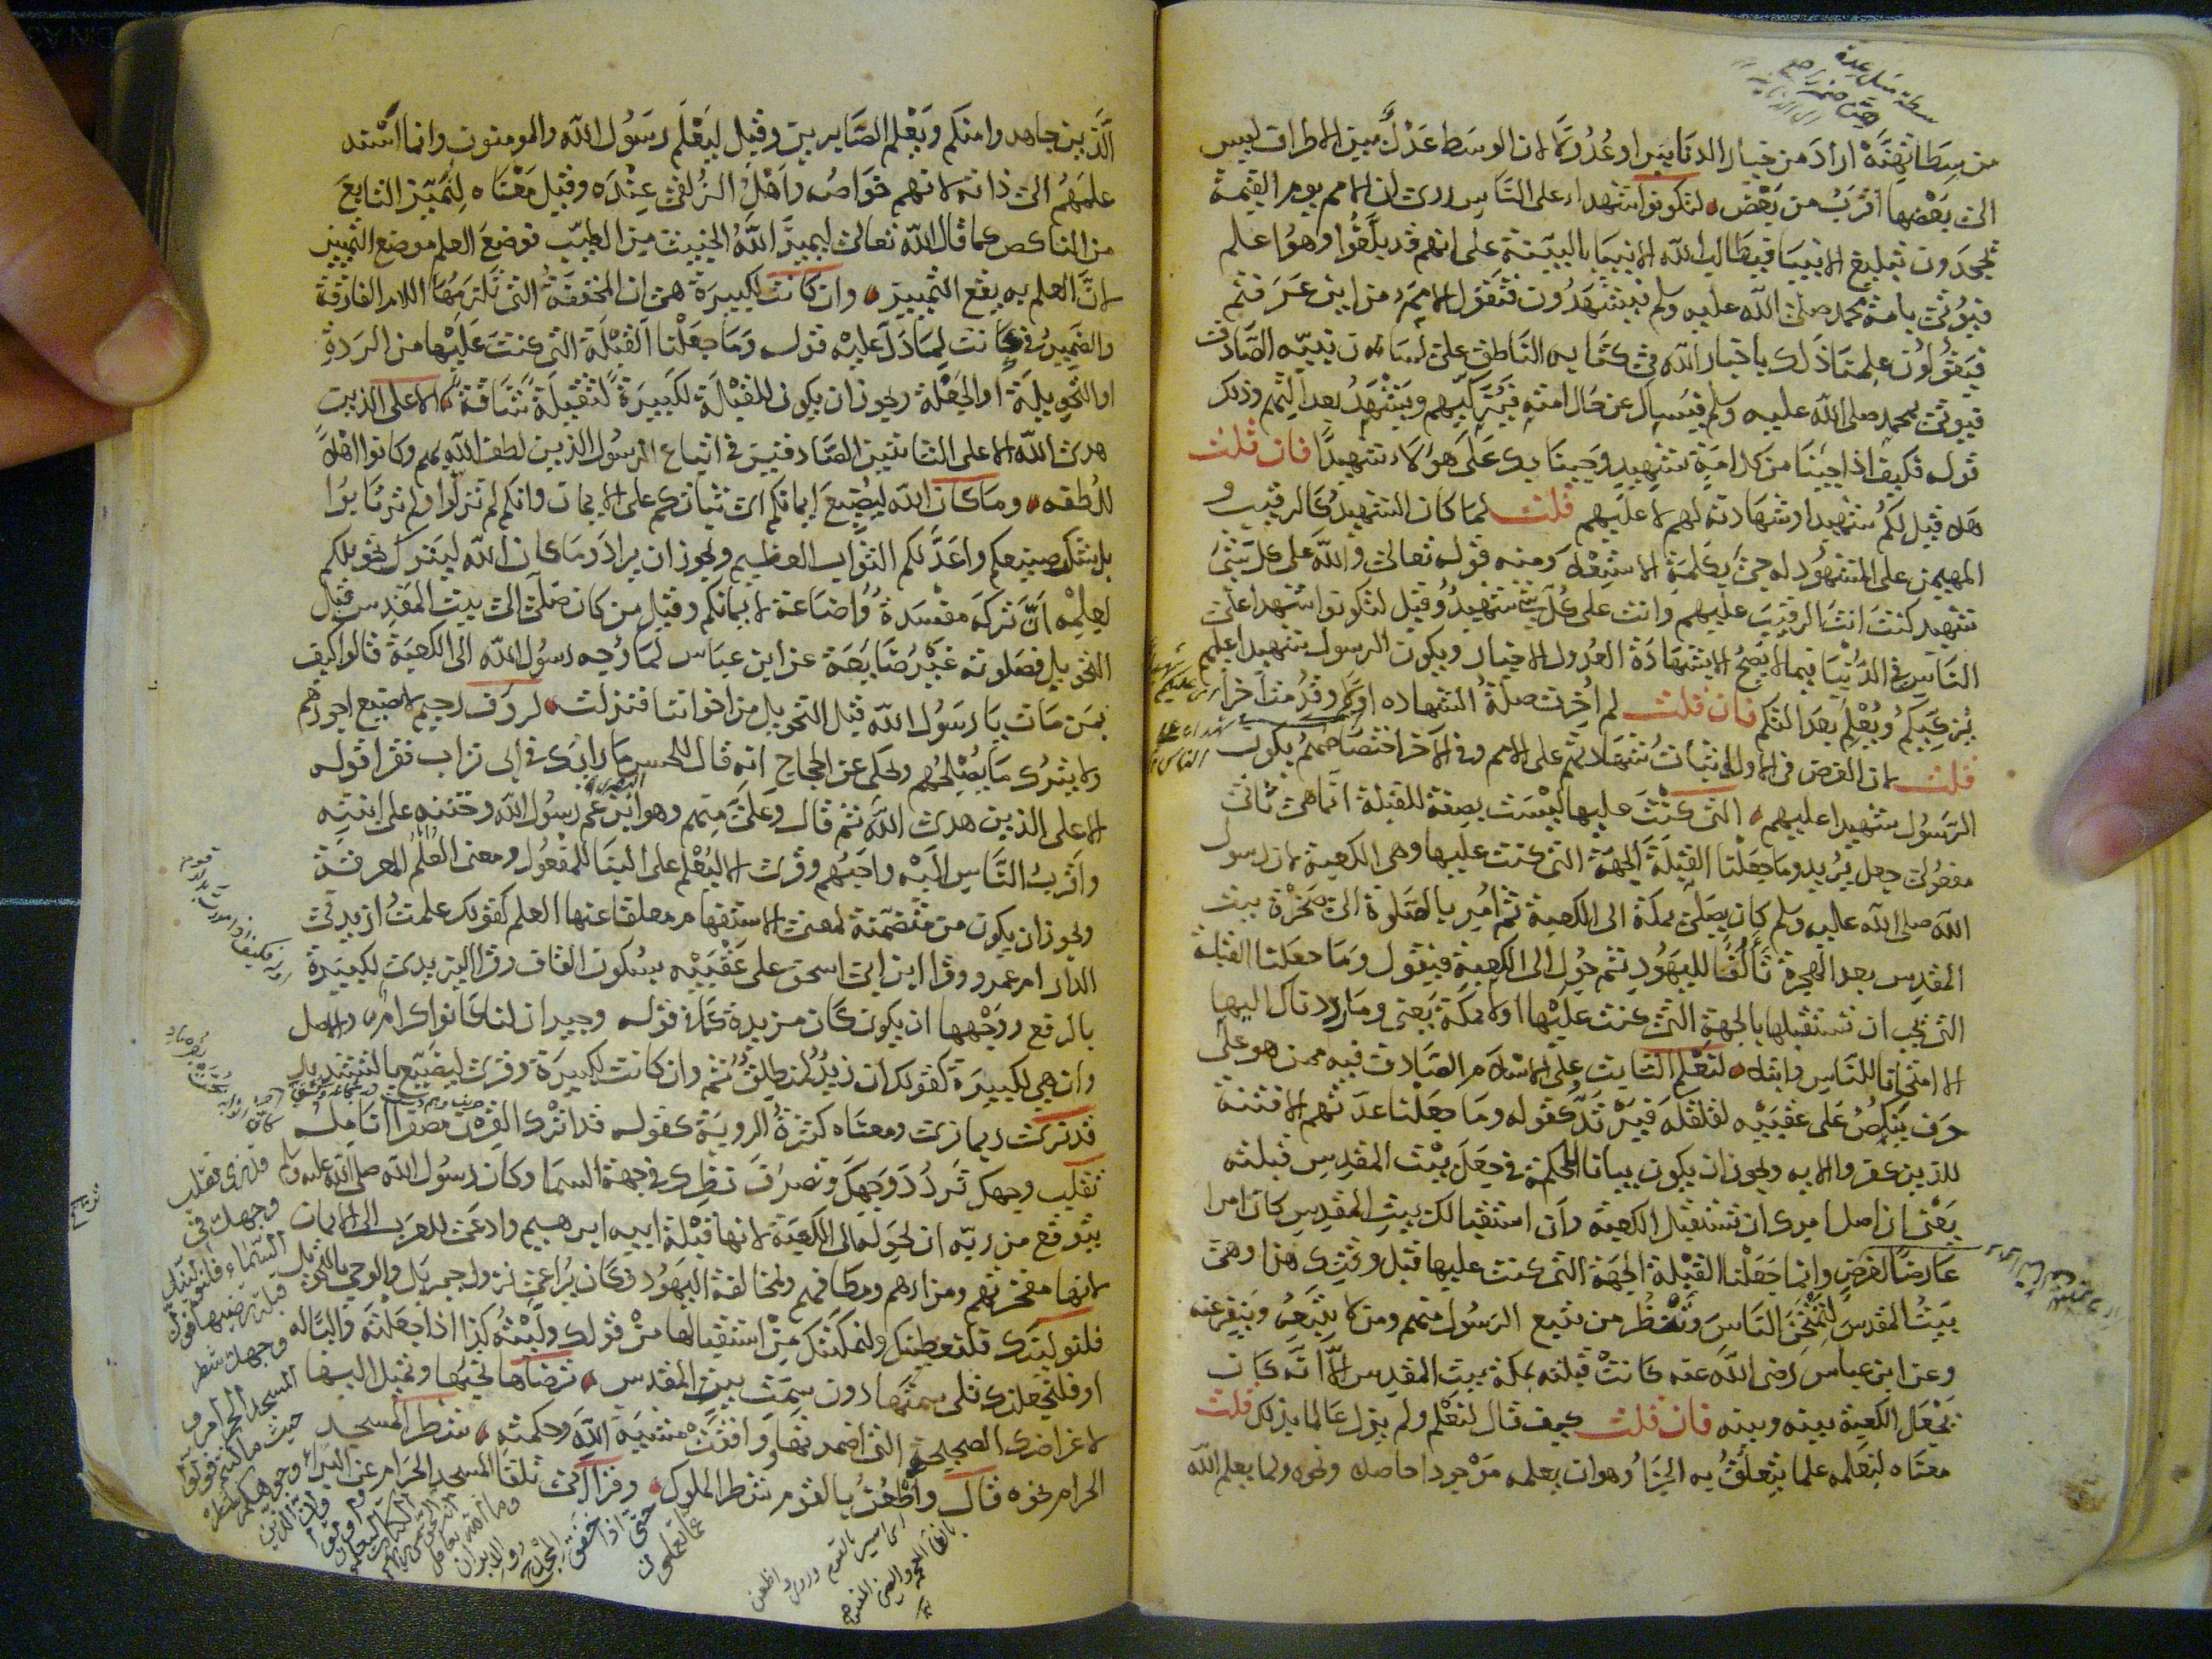 من سطاتهنه اراد من خيار الدنانير او عدولا لان الوسط عدل بين الاطراف ليس
الى بعضها اقرب من بعض لتكونوا شهداء على الناس روى ان الامم يوم القيمة
يجحدون تبليغ الانبيا فيطالب الله الانبيا بالبينة على انهم قد بلغوا وهو اعلم
فيؤتى بامة محمد صلى الله عليه وسلم فيشهدون فتقول الامم من اين عرفتم
فيقولون علمنا ذلك باخبار الله في كتابه الناطق على لسان نبيه الصادق
فيوتى بمحمد صلى الله عليه وسلم فيسال عن حال امته فيزكيهم ويشهد بعدالتهم وذلك
قوله فكيف اذا جينا من كل امة بشهيد وجينا بك على هؤلاء شهيدا فان قلت
هلا قيل لكم شهيدا وشهادته لهم لا عليهم قلت لما كان الشهيد كالرقيب و
المهيمن على المشهود له جئ بكلمة الاستعلا ومنه قوله تعالى والله على كل شئ
شهيد كنت انت الرقيب عليهم وانت على كل شئ شهيد وقيل لتكونوا شهدا على
الناس في الدنيا فيما لا يصح الا بشهادة العدول الاخيار ويكون الرسول شهيدا عليكم
يزكيكم ويعلم بعدالتكم فان قلت لم اخرت صلة الشهاده اولا وقدمت اخرا
قلت لان الغرض في الاول اثبات شهادتهم على الامم وفي الاخر اختصاصهم بكون
الرسول شهيدا عليهم التي كنت عليها ليست بصفة للقبلة انما هي ثاني
مفعولي جعل يريد وما جعلنا القبلة الجهة التي كنت عليها وهي الكعبة لان رسول
الله صلى الله عليه وسلم كان يصلي بمكة الى الكعبة ثم امر بالصلوة الى صخرة بيت
المقدس بعد الهجرة تألفا لليهود ثم حول الى الكعبة فيقول وما جعلنا القبلة
التي يجب ان تستقبلها بالجهة التي كنت عليها اولا بمكة يعني وما رددناك اليها
الا امتحانا للناس وابتلا لنعلم الثابت على الاسلام الصادق فيه ممن هو على
حرف ينكص على عقبيه لقلقله فيرتد كقوله وما جعلنا عدتهم الا فتنة
للذين كفروا الايه ويجوز ان يكون بيانا للحكمة في جعل بيت المقدس قبلته
يعني ان اصل امرك ان تستقبل الكعبة وان استقبالك بيت المقدس كان امرا
عارضا لغرض وانما جعلنا القبلة الجهة التي كنت عليها قبل وقتك هذا وهي
بيت المقدس لنمتحن الناس وننظر من يتبع الرسول منهم ومن لا يتبعه وينفر عنه
وعن ابن عباس رضى الله عنه كانت قبلته بمكة بيت المقدس الا انه كان
يجعل الكعبة بينه وبينه فان قلت كيف قال لنعلم ولم يزل عالما بذلك قلت
معناه لنعلمه علما يتعلق به الجزاء وهو ان يعلمه موجودا حاصلا ونحوه ولما يعلم الله
الذين جاهدوا منكم ويعلم الصابرين وقيل ليعلم رسول الله والمومنون وانما اسند
علمهم الى ذاته لانهم خواصه واهل الزلفى عنده وقيل معناه لنميز التابع
من الناكص كما قال الله تعالى ليميز الله الخبيث من الطيب فوضع العلم موضع التمييز
لان العلم به يقع التمييز وان كانت لكبيرة هي ان المخففة التي تلزمها اللام الفارقة
والضمير في كانت لما دل عليه قوله وما جعلنا القبلة التي كنت عليها من الردة
او التحويلة او الجعلة ويجوز ان يكون للقبلة لكبيرة لثقيلة شاقة الا على الذين
هدى الله الا على الثابتين الصادقين في اتباع الرسول الذين لطف الله بهم وكانوا اهلا
للطفه وما كان الله ليضيع ايمانكم اى ثباتكم على الايمان وانكم لم تزلوا ولم ترتابوا
بل شكر صنيعكم واعد لكم الثواب العظيم ويجوز ان يراد وما كان الله ليترك تحويلكم
لعلمه ان تركه مفسدة واضاعة لايمانكم وقيل من كان صلى الى بيت المقدس قبل
التحويل فصلوته غير ضايعة عن ابن عباس لما وجه رسول الله الى الكعبة قالوا كيف
بمن مات يا رسول الله قبل التحويل من اخواننا فنزلت لروف رحيم لا يضيع اجورهم
ولا يترك ما يصلحهم ويحكى عن الحجاج انه قال للحسن ما رايك في ابي تراب فقرا قوله
الا على الذين هدى الله ثم قال وعلى منهم وهو ابن عم رسول الله وختنه على ابنته
واقرب الناس اليه واحبهم وقرئ الا ليعلم على البنا للمفعول ومعنى العلم المعرفة
ويجوز ان يكون من متضمنة لمعنى الاستفهام معلقا عنها العلم كقولك علمت ازيد في
الدار ام عمرو وقرا ابن ابي اسحق على عقبيه بسكون القاف وقرا اليزيدى لكبيرة
بالرفع ووجهها ان يكون كان مزيدة كما في قوله وجيران لنا كانوا كرام والاصل
وان هي لكبيرة كقولك ان زيد لمنطلق ثم وان كانت لكبيرة وقرئ ليضيع بالتشديد
قد نرى ربما نرى ومعناه كثرة الروية كقوله قد اترك القرن مصفرا انامله
تقلب وجهك تردد وجهك وتصرف نظرك في جهة السما وكان رسول الله صلى الله عليه وسلم
يتوقع من ربه ان يحوله الى الكعبة لانها قبلة ابيه ابرهيم وادعى للعرب الى الايمان
لانها مفخرتهم ومزارهم ومطافهم ولمخالفة اليهود فكان يراعي نزول جبريل والوحى بالتحويل
فلنولينك فلنعطينك ولنمكننك من استقبالها من قولك وليته كذا اذا جعلته واليا له
او فلنجعلنك تلى سمتها دون سمت بيت المقدس ترضاها تحبها وتميل اليها
لاغراضك الصحيحة التي اضمرتها ووافقت مشية الله وحكمته شطر المسجد
الحرام نحوه قال واظعن بالقوم شطر الملوك وقرا ابى تلقا المسجد الحرام عن البرا
قد نرى تقلب
وجهك في
السماء فلنولينك
قبلة ترضيها فول
وجهك شطر
المسجد الحرام و
حيث ما كنتم فولوا
وجوهكم شطره
وان الذين
اوتوا
الكتاب ليعلمون
انه الحق من ربهم
وما الله بغافل
عما يعملون
حتى اذا خفق المجدح